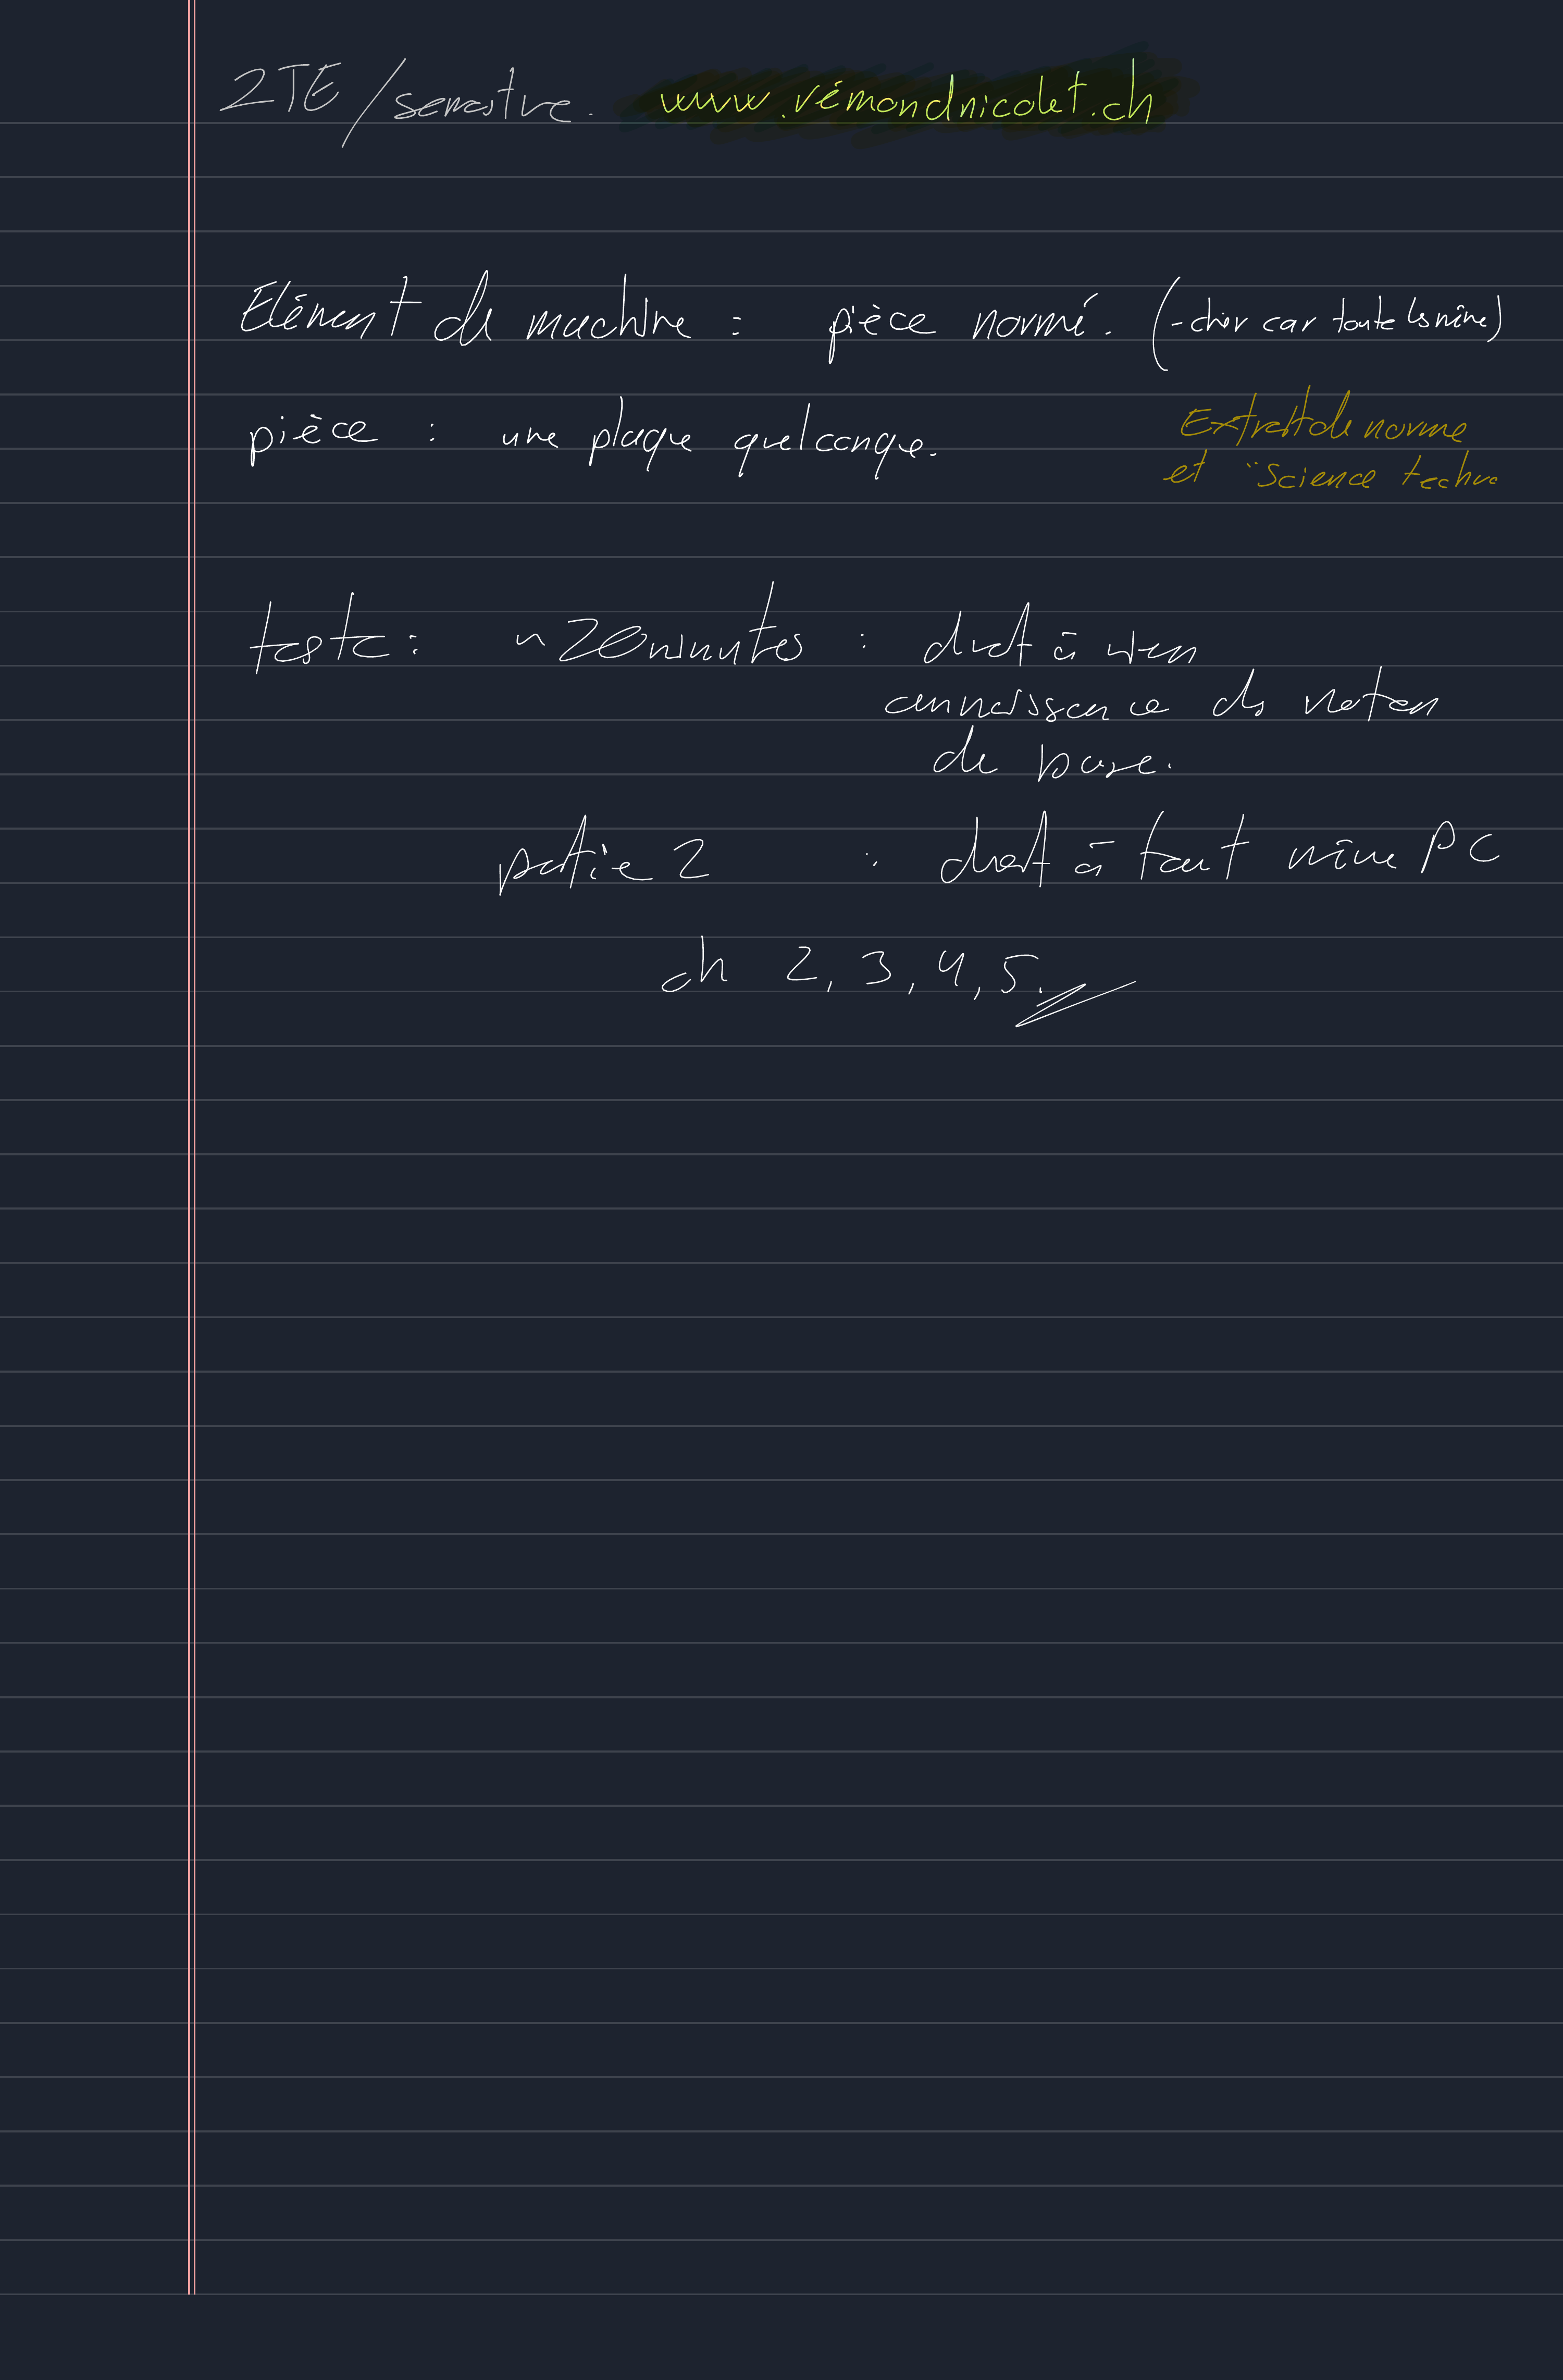 2TE/semestre. www.rémondnicolet.ch
Elément de machine : pièce normé. (-cher car toute les même)
pièce : une plaque quelconque.
Extrait de norme
et "Science techno
teste : ~20minutes : droit à rien
connaissance de notion
de base.
partie 2 : droit à tout même PC
ch 2, 3, 4, 5.